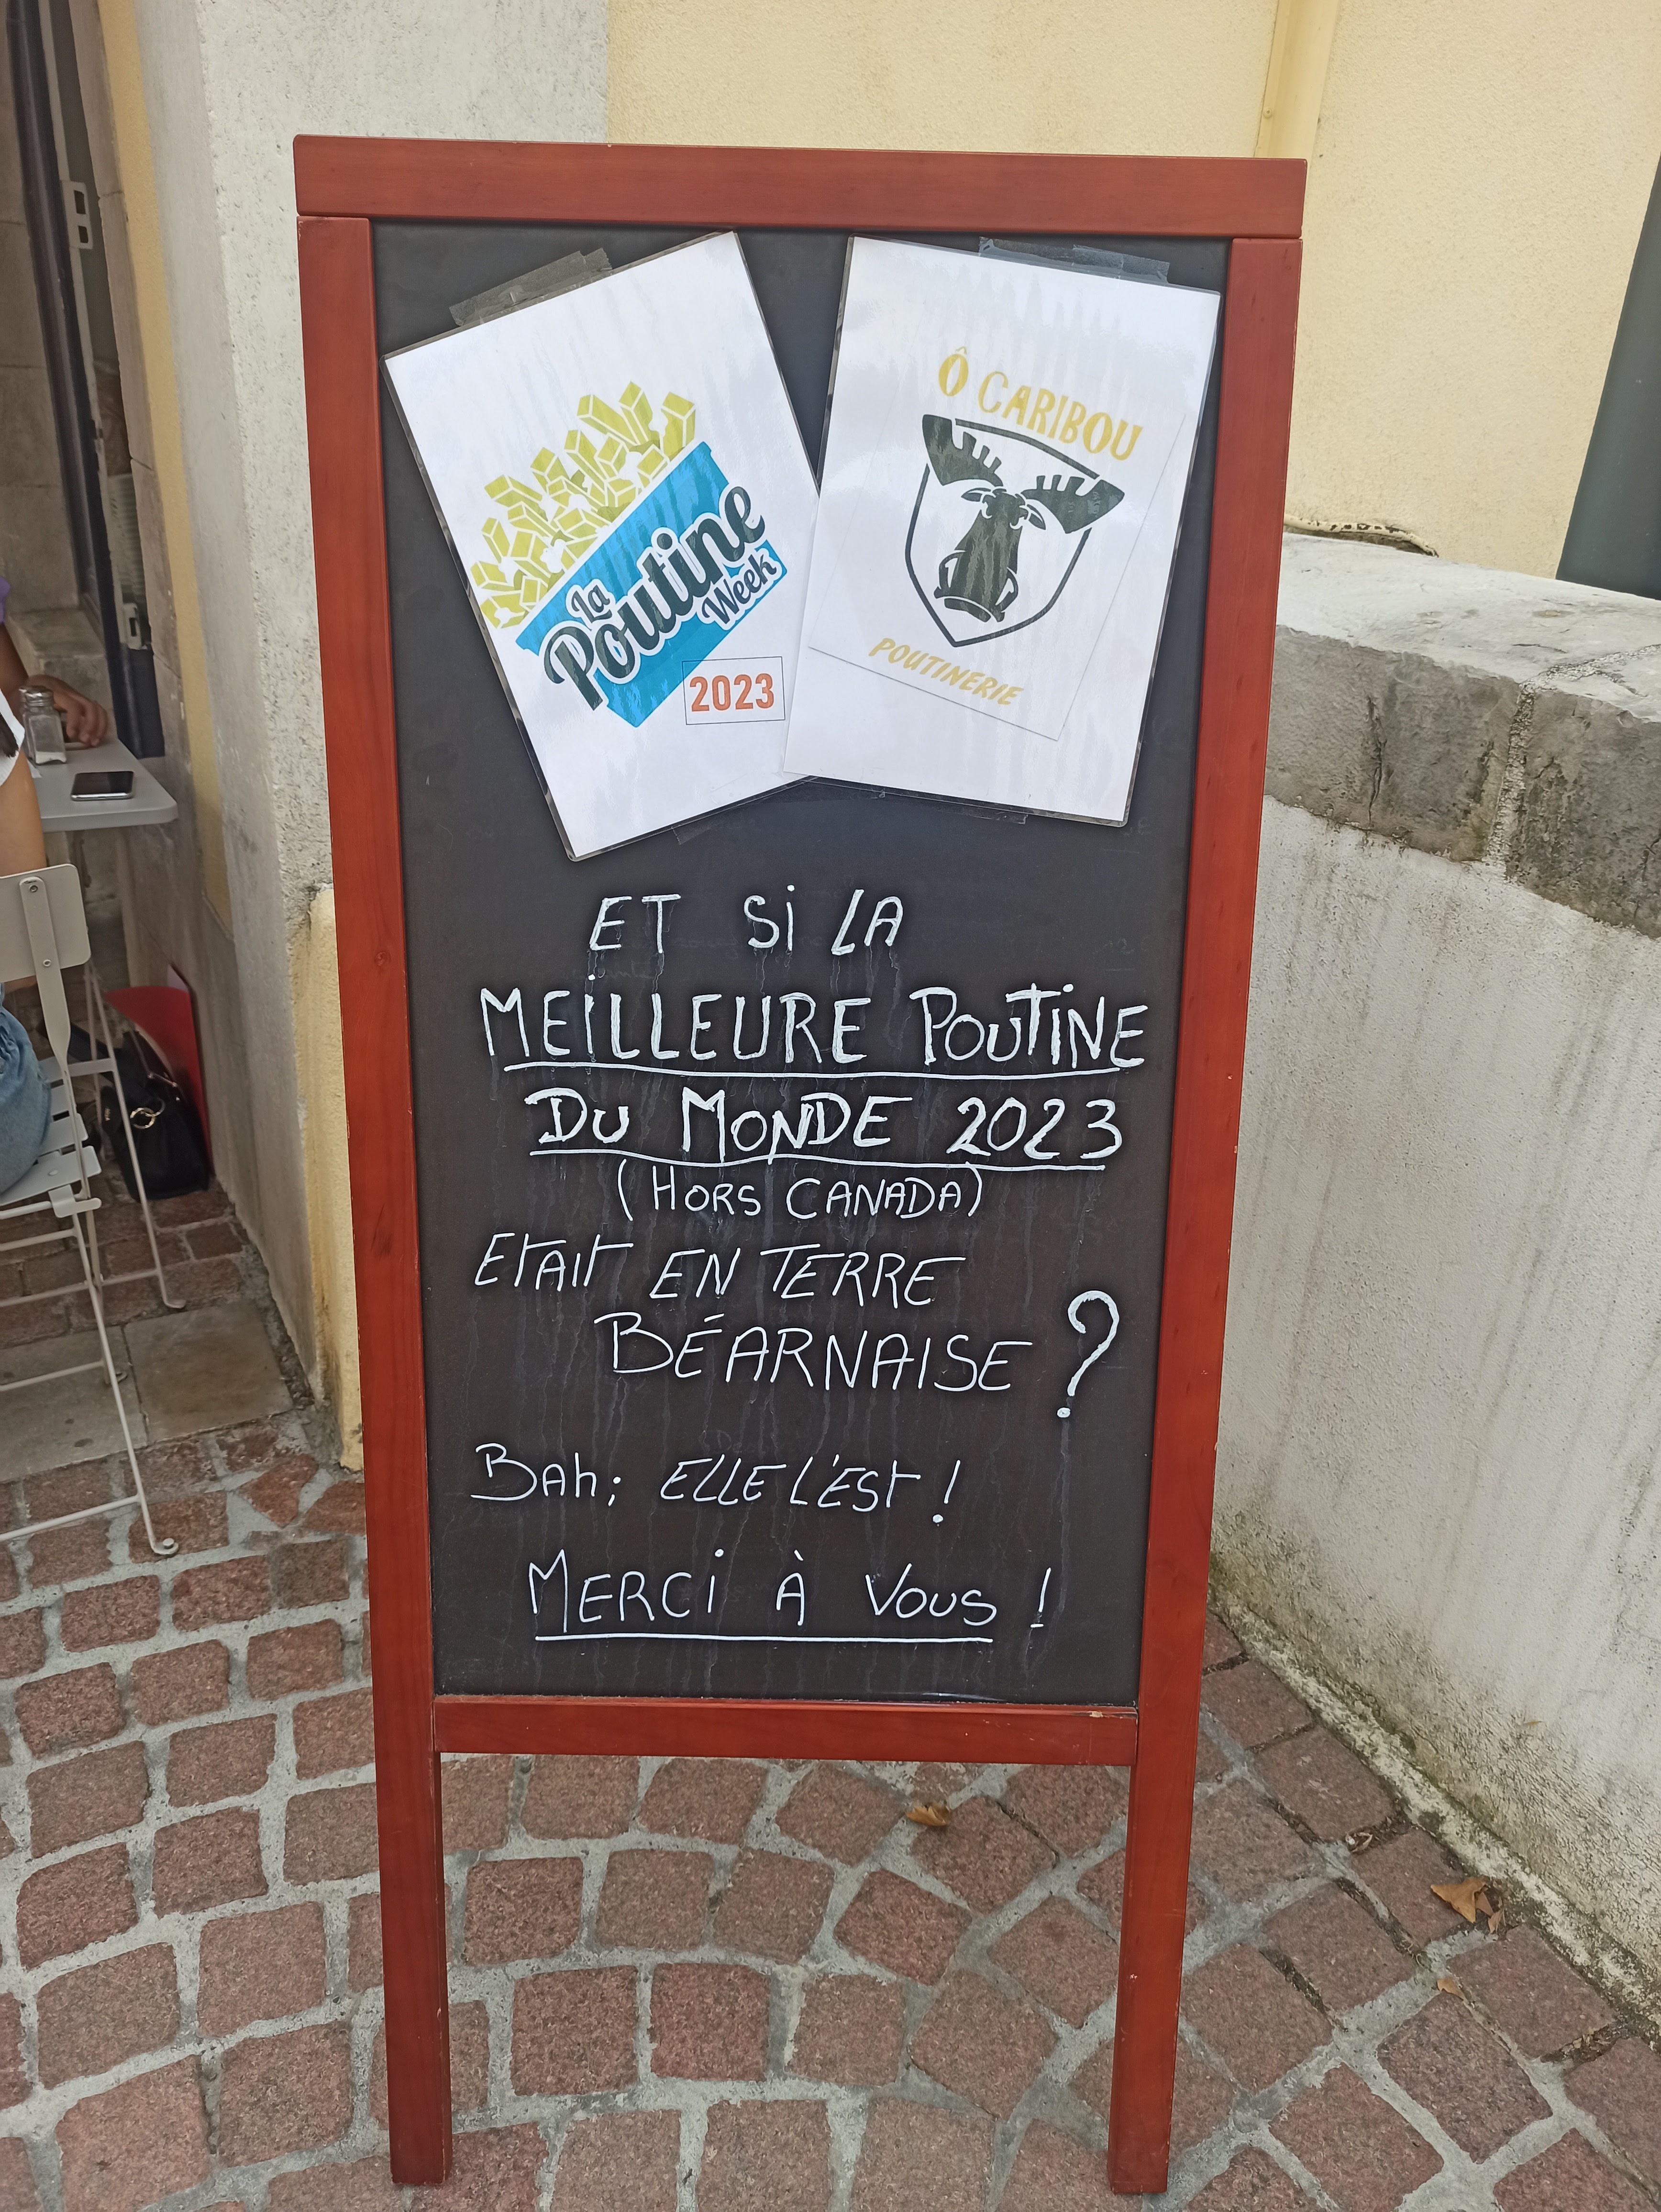 La
Poutine
Week
2023
Ô CARIBOU
POUTINERIE
ET Si LA
MEiLLEURE POUTINE
DU MONDE 2023
(HORS CANADA)
ETAIT EN TERRE
BÉARNAISE ?
BAh; ELLE L'EST !
MERCi À VOUS !